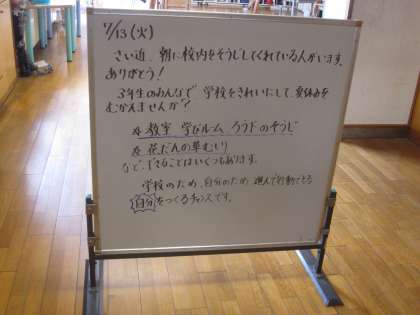 7/13(火)
さい近、朝に校内をそうじしてくれている人がいます。
ありがとう!
3年生のみんなで 学校をきれいにして、夏休みを
むかえませんか?
教室、学びルーム、ろう下のそうじ
花だんの草むしり
など、できることはいくつもあります。
学校のため、自分のため 進んで行動できる
自分をつくるチャンスです。